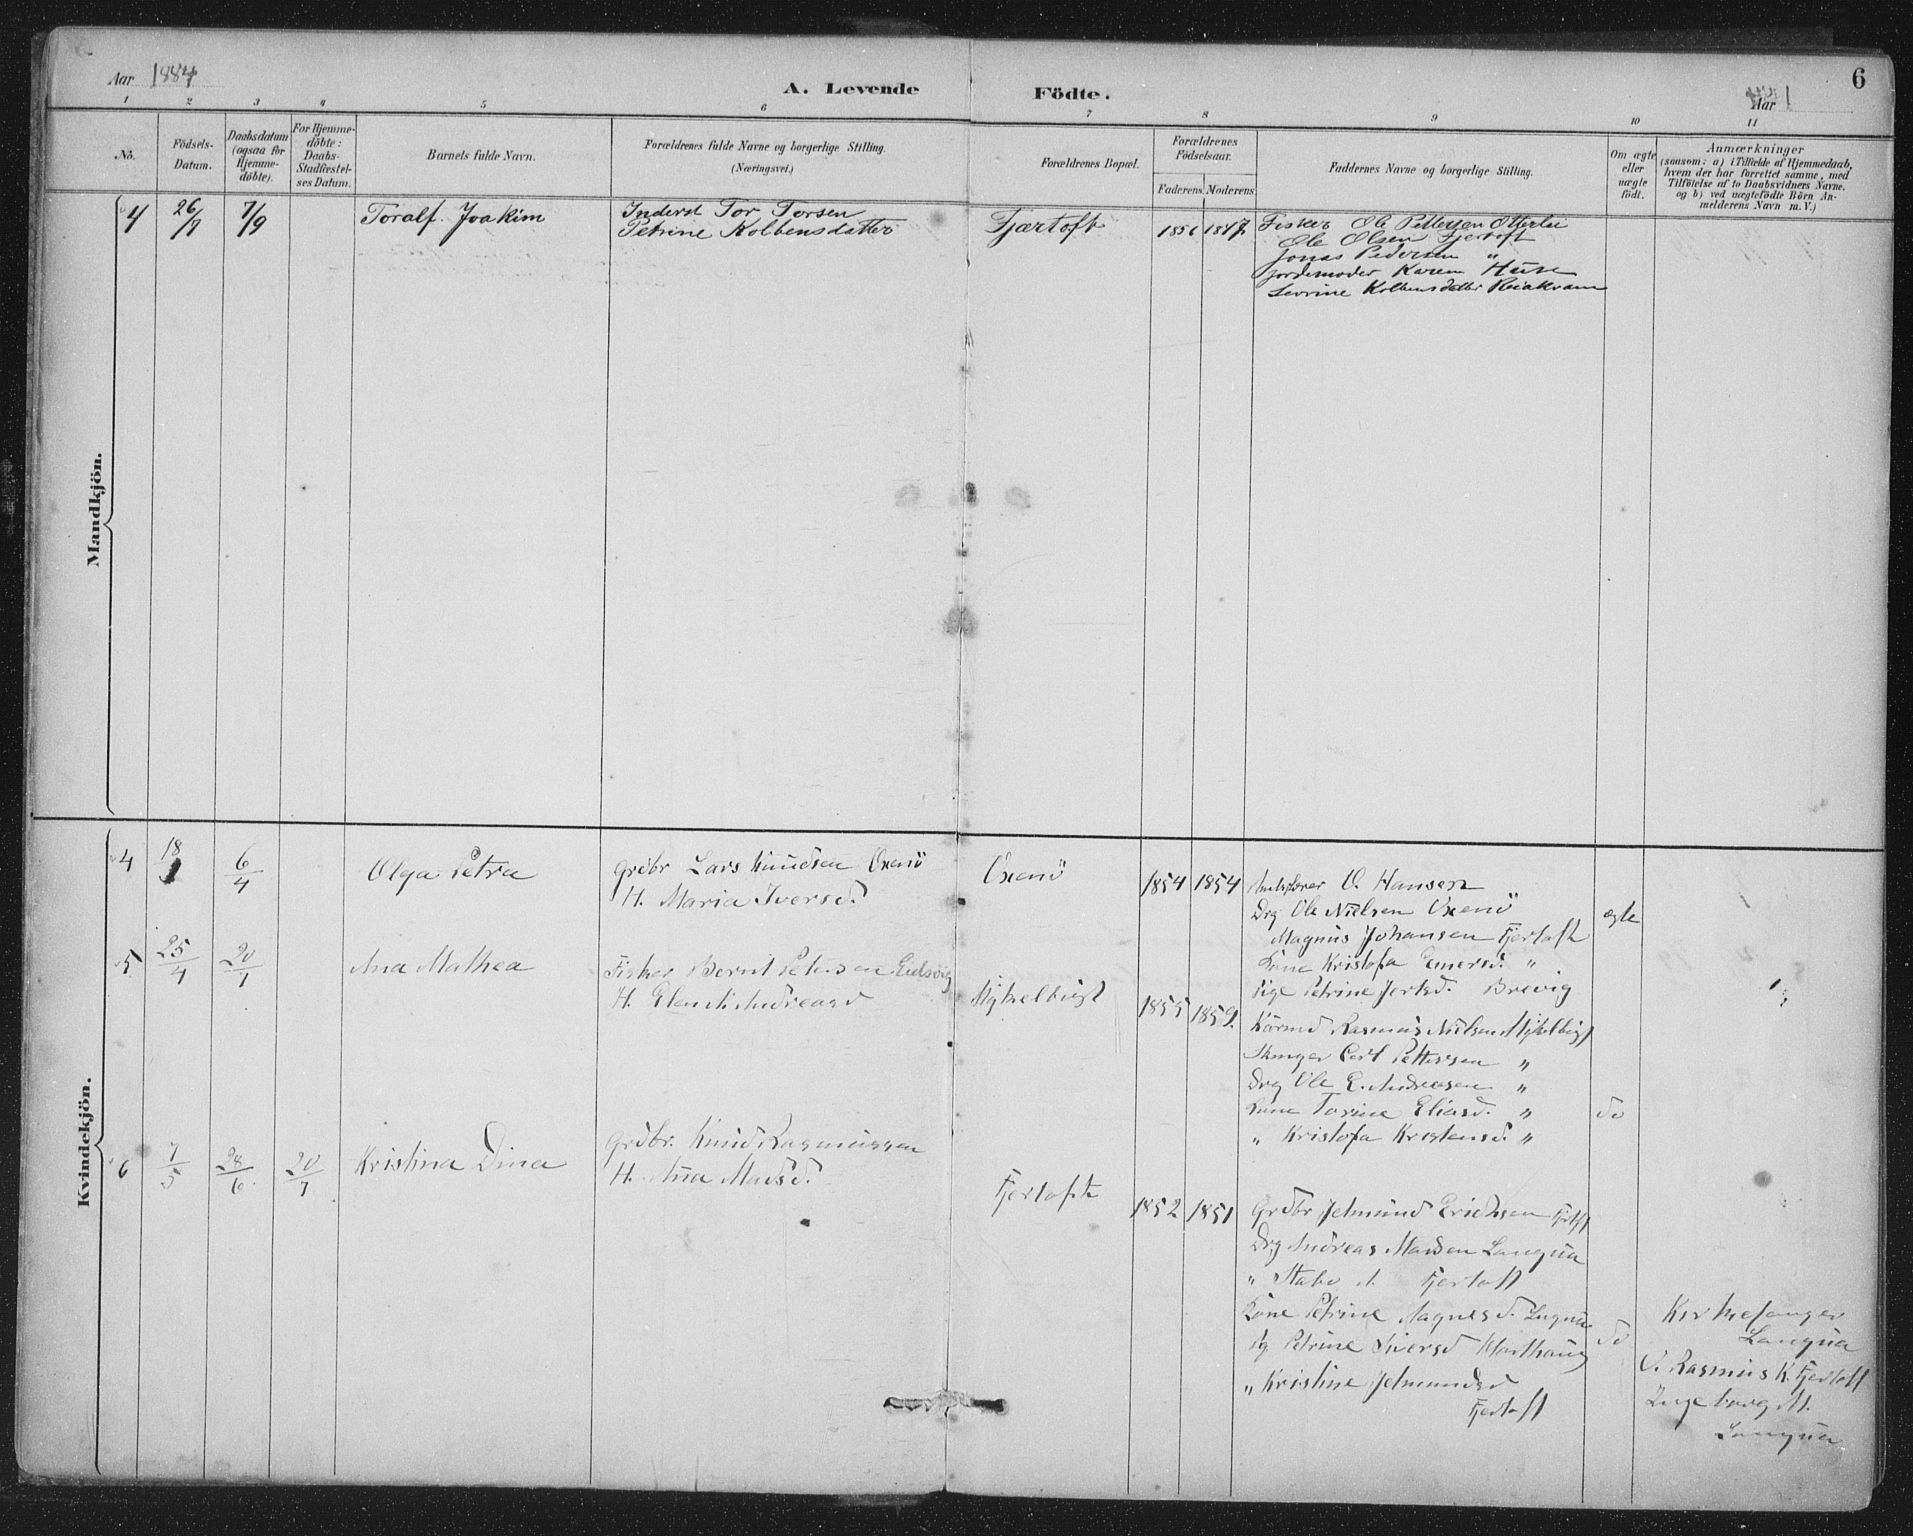 Aar 1884
A. Levende
Födte.
Aar 1
6
1 2 3 4 5 6 7 8 9 10 11
No.
Födsels-Datum.
Daabsdatum (ogsaa for Hjemme-döbte).
For Hjemme-döbte: Daabs-Stadfæstel-ses Datum.
Barnets fulde Navn.
Forældrenes fulde Navne og borgerlige Stilling.
(Næringsvei.)
Forældrenes Bopæl.
Forældrenes Födselsaar.
Faderens. Moderens.
Faddernes Navne og borgerlige Stilling.
Om ægte eller uægte födt.
Anmærkninger
(saasom: a) i Tilfælde af Hjemmedaab,
hvem der har forrettet samme, med
Tilföielse af to Daabsvidners Navne,
og b) ved uægtefödte Börn An-
melderens Navn m. V.)
Mandkjön.
4 26/7 7/9 Toralf Joakim
Inderst Tor Torsen
Petrine Kolbensdatter
Fjærtoft 1856 1847
Fisker Ole Pettersen Otterlei
Ole Olsen Fjertoft
Jonas Pedersen "
Jordemoder Karen Huse
Sevrine Kolbensdatter
Kvindekjön.
4 18 6/4 Olga Petra
Grdbr Lars Knudsen Oxenö
H. Maria Iversd.
Oxenö 1854 1854
O. Hansen "
Drg Ole Nielsen Oxenö
Magnus Johansen Fjertoft
Kone Kristofa Emersd. "
Pige Petrine Brevig
ægte
5 25/4 20/7 Ana Mathea
Fisker Bernt Petersen Eidsvig
H. Andreasd
1855 1859.
Rasmus Nielsen
Pettersen "
Drg Ole E. Andreasen "
Kone Torine Eliasd. "
" Kristofa Kristensd. "
do
6 7/5 28/6 20/7 Kristina Dina
Grdbr. Knud Rasmussen
H. Ana Madsd.
Fjertoft 1852 1851
Grdbr Jetmund Erichsen Fjrtft
Drg Andreas Madsen Langua
" Fjertoft
Kone Petrine Magnesd. Lngua
Pg Petrine Siversd
" Kristine Jetmundsd
Fjertoft
do
Kirkesanger
Langua
O. Rasmus K. Fjertoft
Ingeborg M.
Langua